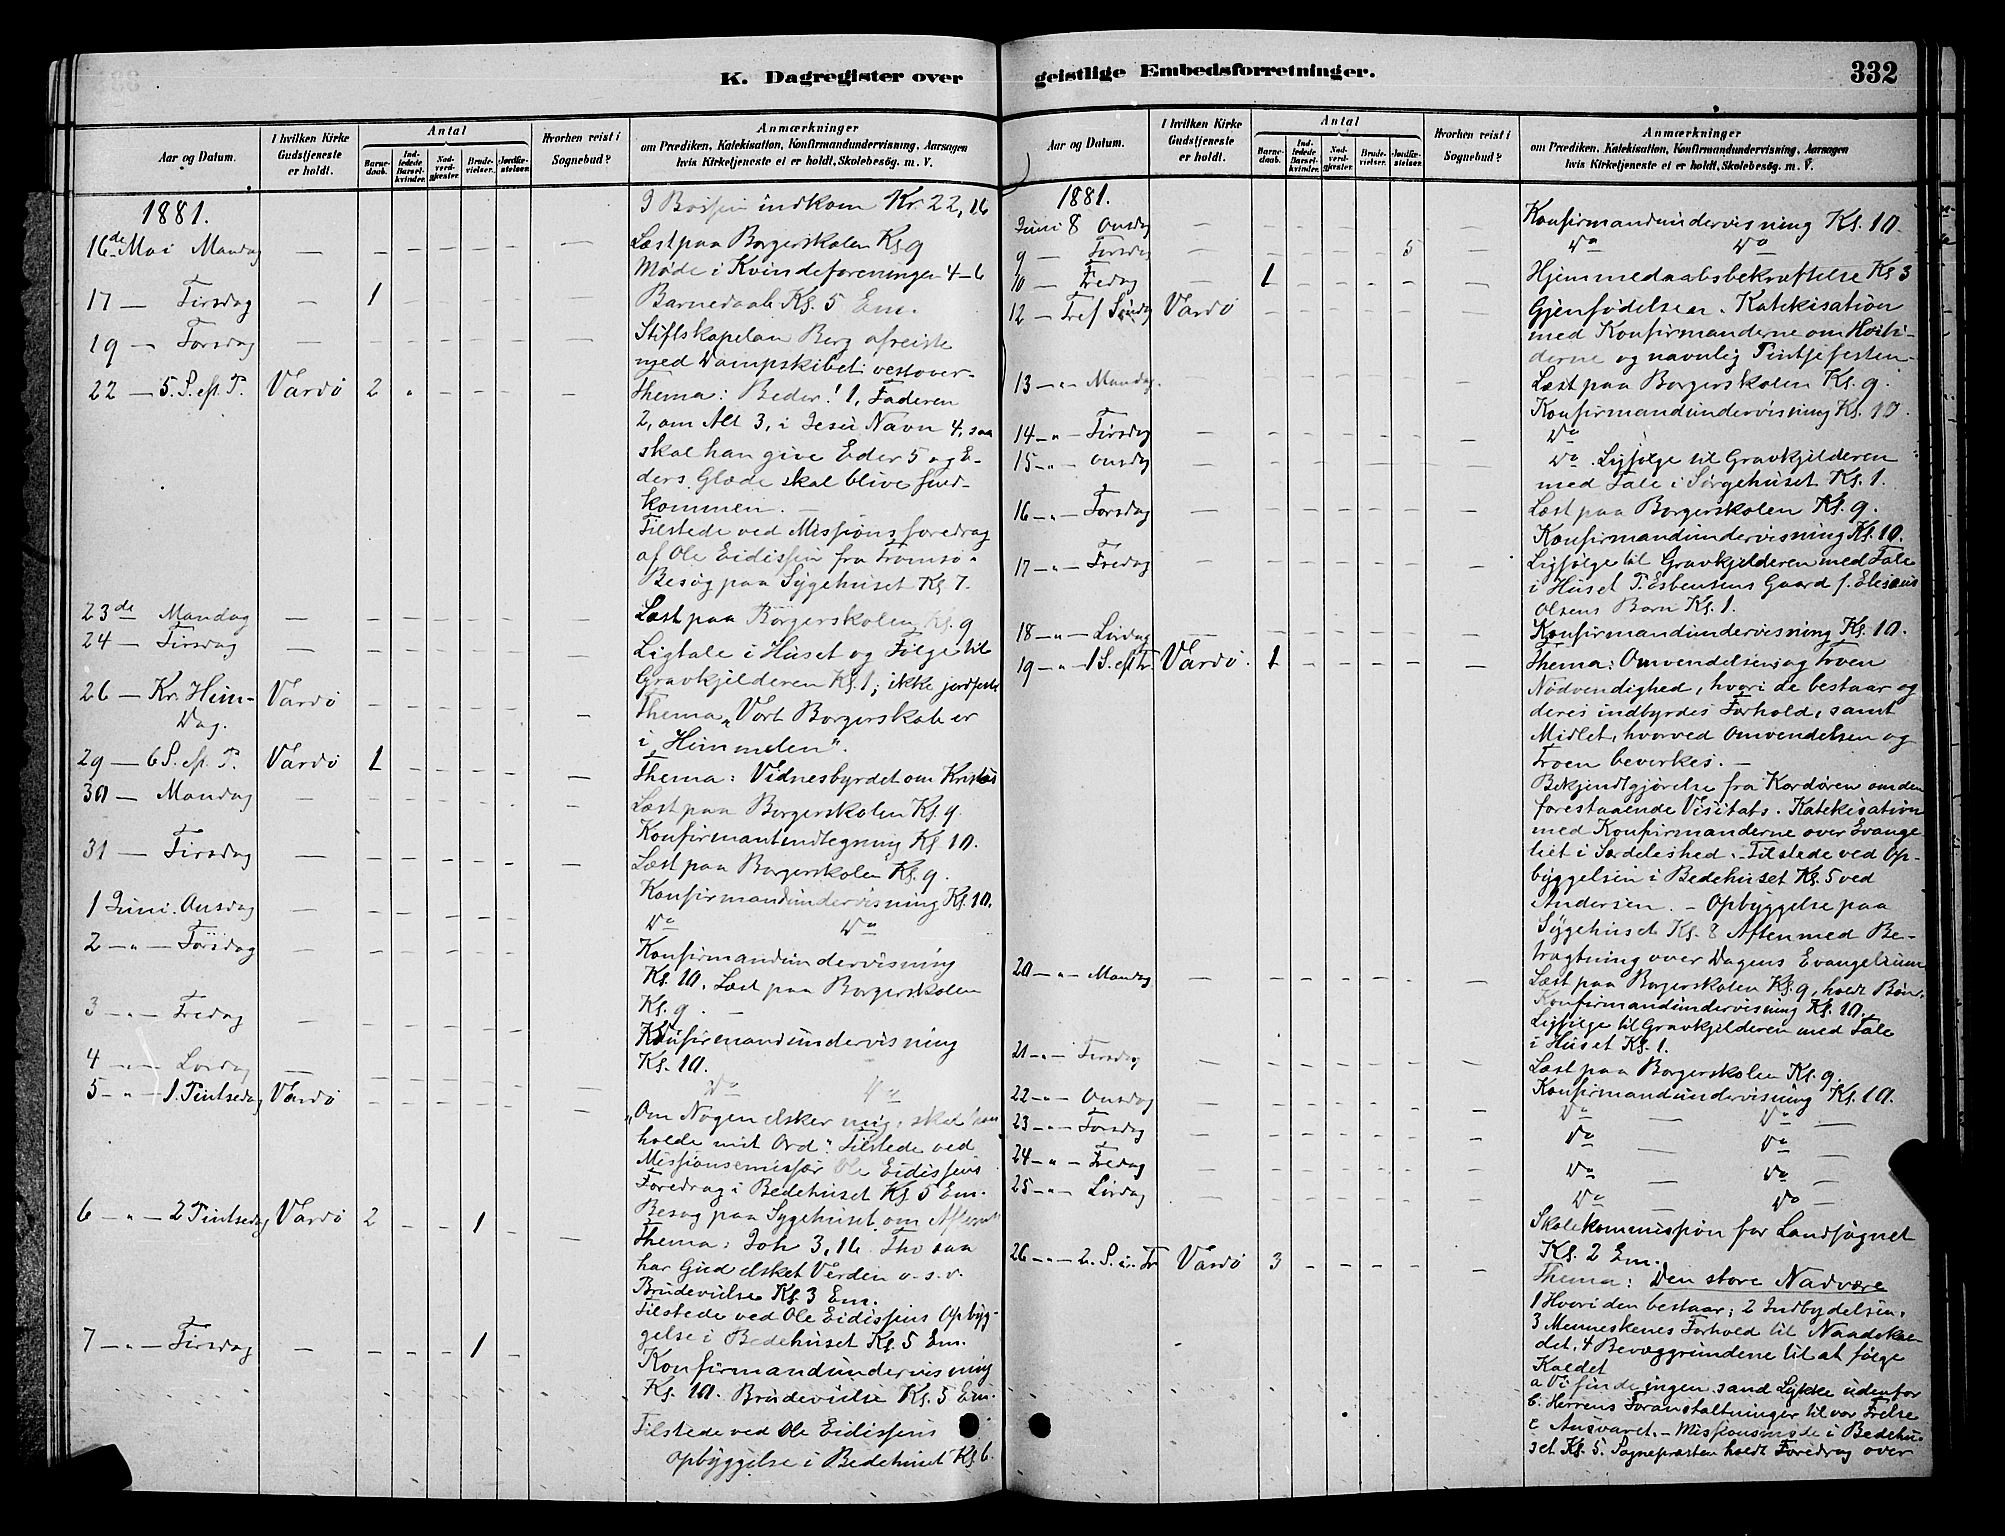 K. Dagregister over
geistlige Embedsforretninger.
332
Aar og Datum.
I hvilken Kirke
Gudstjeneste
er holdt.
Antal
Barne-
daab.
Ind-
ledede
Barsel-
kvinder.
Nad-
verd-
gjæster.
Brude-
vielser.
Jordfæ-
stelser.
Hvorhen reist i
Sognebud?
Anmærkninger
om Prædiken, Katekisation, Konfirmandundervisning, Aarsagen
hvis Kirketjeneste ei er holdt, Skolebesög. m. V.
1881.
I Bøssen indkom Kr. 22,16
16de Mai Mandag — — — — — — —
Læst paa Borgerskolen Kl. 9
Møde i Kvindeforeningen 4–6
17 — Tirsdag — 1 — — — — —
Barnedaab Kl. 5 Em.
19 — Torsdag — — — — — — —
Stiftskapelan Berg afreiste
med Dampskibet vestover
22 — 5. S. ef. P. Vardö 2 — — — — —
Thema: Beder! 1, Faderen
2, om Alt 3, i Jesu Navn 4, saa
skal han give Eder 5 og E-
ders Glæde skal blive fuld-
kommen. —
Tilstede ved Missionsforedrag
af Ole Eidissen fra Tromsö.
Besøg paa Sygehuset Kl 7.
23de Mandag — — — — — — —
Læst paa Borgerskolen Kl. 9
24 — Tirsdag — — — — — — —
Ligtale i Huset og Følge til
Gravkjelderen Kl. 1; ikke jordfæstet
26 — Kr. Him- Vardö — — — — — —
Dag.
Thema „Vort Borgerskab er
i Himmelen".
29 — 6 S. ef. P. Vardö 1 — — — — —
Thema: Vidnesbyrdet om Kristus
30 — Mandag — — — — — — —
Læst paa Borgerskolen Kl. 9.
Konfirmantindtegning Kl 10.
31 — Tirsdag — — — — — — —
Læst paa Borgerskolen Kl. 9.
Konfirmandundervisning Kl. 10.
1 Juni. Onsdag — — — — — —
Do Do
2 — " — Torsdag — — — — — —
Konfirmandundervisning
Kl. 10. Læst paa Borgerskolen
Kl. 9. —
3 — " — Fredag — — — — — —
Konfirmandundervisning
Kl. 10.
4 — " — Lordag — — — — — — —
Do Do
5 — " — 1. Pintsedag Vardö — — — — — —
„Om Nogen elsker mig, skal han
holde mit Ord." Tilstede ved
Missionsemissær Ole Eidissens
Foredrag i Bedehuset Kl. 5 Em.
Besøg paa Sygehuset om Aftenen
6 — " — 2 Pintsedag Vardö 2 — — 1 — —
Thema: Joh 3,16. Thi saa
har Gud elsket Verden o. s. v.
Brudevielse Kl. 3 Em.
Tilstede ved Ole Eidissens Opbyg-
gelse i Bedehuset Kl. 5 Em.
7 — " — Tirsdag — — — — 1 — —
Konfirmandundervisning
Kl. 10. Brudevielse Kl. 5 Em.
Tilstede ved Ole Eidissens
opbyggelse i Bedehuset Kl. 6.
Aar og Datum.
I hvilken Kirke
Gudstjeneste
er holdt.
Antal
Barne-
daab.
Ind-
ledede
Barsel-
kvinder.
Nad-
verd-
gjæster.
Brude-
vielser.
Jordfæ-
stelser.
Hvorhen reist i
Sognebud?
Anmærkninger
om Prædiken, Katekisation, Konfirmandundervisning, Aarsagen
hvis Kirketjeneste ei er holdt, Skolebesög. m. V.
1881.
Juni 8 Onsdag — — — — — — —
Konfirmandundervisning Kl. 10.
9 — Torsdag — — — — — 5 —
Do Do
10 — Fredag — 1 — — — — —
Hjemmedaabsbekræftelse Kl. 3
12 — Tref Søndag Vardö — — — — — —
Gjenfödelsen. Katekisation
med Konfirmanderne om Høiti-
derne og navnlig Pintsefesten.
13 — " — Mandag. — — — — — —
Læst paa Borgerskolen Kl. 9.
Konfirmandundervisning Kl. 10.
14 — " — Tirsdag — — — — — — —
Do
15 — " — Onsdag — — — — — — —
Do. Ligfølge til Gravkjelderen
med Tale i Sørgehuset Kl. 1.
16 — " — Torsdag — — — — — — —
Læst paa Borgerskolen Kl. 9.
Konfirmandundervisning Kl. 10.
17 — " — Fredag — — — — — — —
Ligfølge til Gravkjelderen med Tale
i Huset P. Esbensens Gaard f. Elisæus
Olsens Barn Kl. 1.
18 — " — Lördag — — — — — — —
Konfirmandundervisning Kl. 10.
19 — " — 1 S. ef Tr. Vardö. 1 — — — — —
Thema: Omvendelsens og Troen
Nödvendighed, hvori de bestaar og
deres indbyrdes Forhold, samt
Midlet, hvorved Omvendelsen og
Troen bevirkes. —
Bekjendtgjørelse fra Kordøren om den
forestaaende Visitats. Katekisation
med Konfirmanderne over Evange
liet i Særdeleshed. — Tilstede ved Op-
byggelsen i Bedehuset Kl. 5 ved
Andersen. — Opbyggelse paa
Sygehuset Kl. 8 Aften med Be-
tragtning over Dagens Evangelium
20 — " — Mandag — — — — — — —
Læst paa Borgerskolen Kl. 9, holdt Bön.
Konfirmandundervisning Kl. 10.
Ligfølge til Gravkjelderen med Tale
i Huset Kl. 1.
21 — " — Tirsdag — — — — — — —
Læst paa Borgerskolen Kl. 9.
Konfirmandundervisning Kl. 10.
22 — " — Onsdag — — — — — — —
Do — Do —
23 — " — Torsdag — — — — — — —
Do Do
24 — " — Fredag — — — — — — —
Do — Do —
25 — " — Lördag — — — — — — —
Do — Do —
Skolekommission for Landsognet
Kl. 2 Em.
26 — " — 2. S. e. Tr Vardö 3 — — — — —
Thema: Den store Nadvere
1 Hvori den bestaar; 2 Indbydelsen.
3 Menneskenes Forhold til Naadekal-
det. 4 Bevæggrundene til at følge
Kaldet
a Vi finde ingen sand Lykke udenfor
b. Herrens Foranstaltninger til vor Frelse
c Ansvaret. — Missionsmøde i Bedehu-
set Kl. 5. Sognepræsten holdt Foredrag over